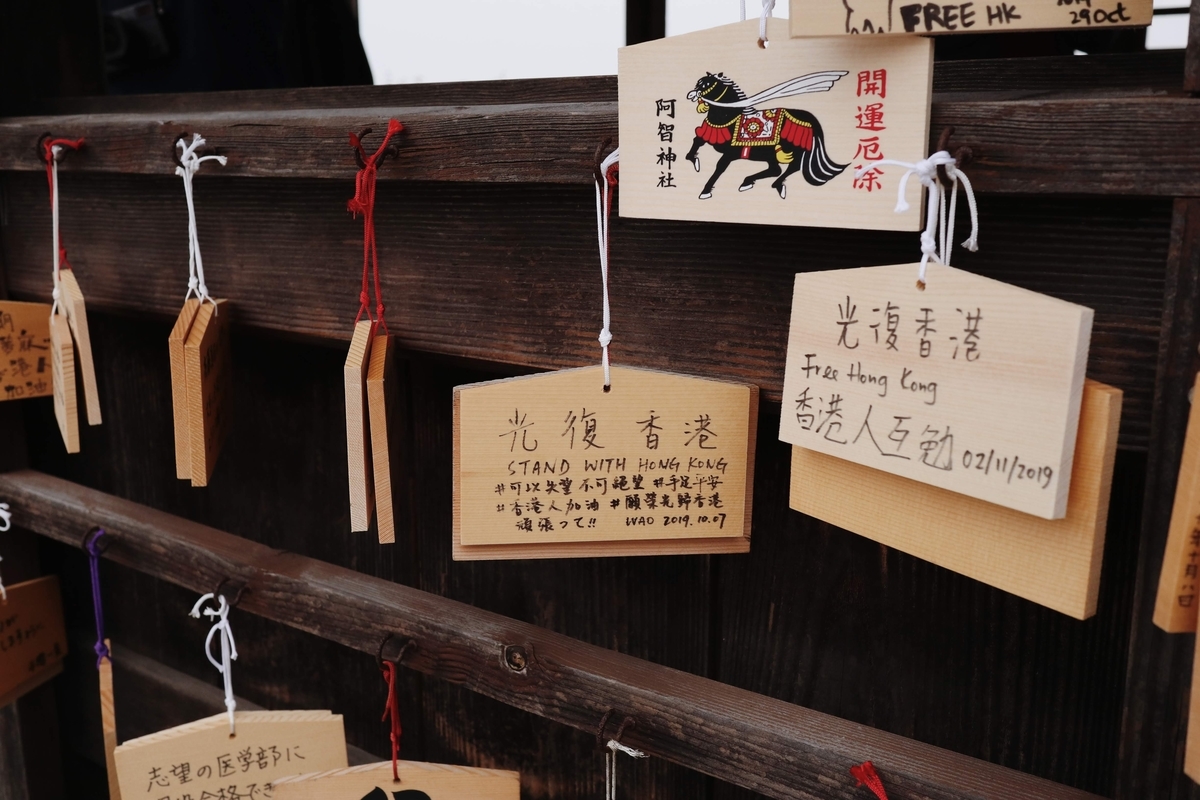 FREE HK
29 Oct
開運厄除
阿智神社
光復香港
Free Hong Kong
香港人互勉 02/11/2019
光復香港
STAND WITH HONG KONG
#可以失望不可絕望 #手足平安
#香港人加油 #願榮光歸香港
頑張って!! WAO 2019.10.07
加油
志望の医学部に